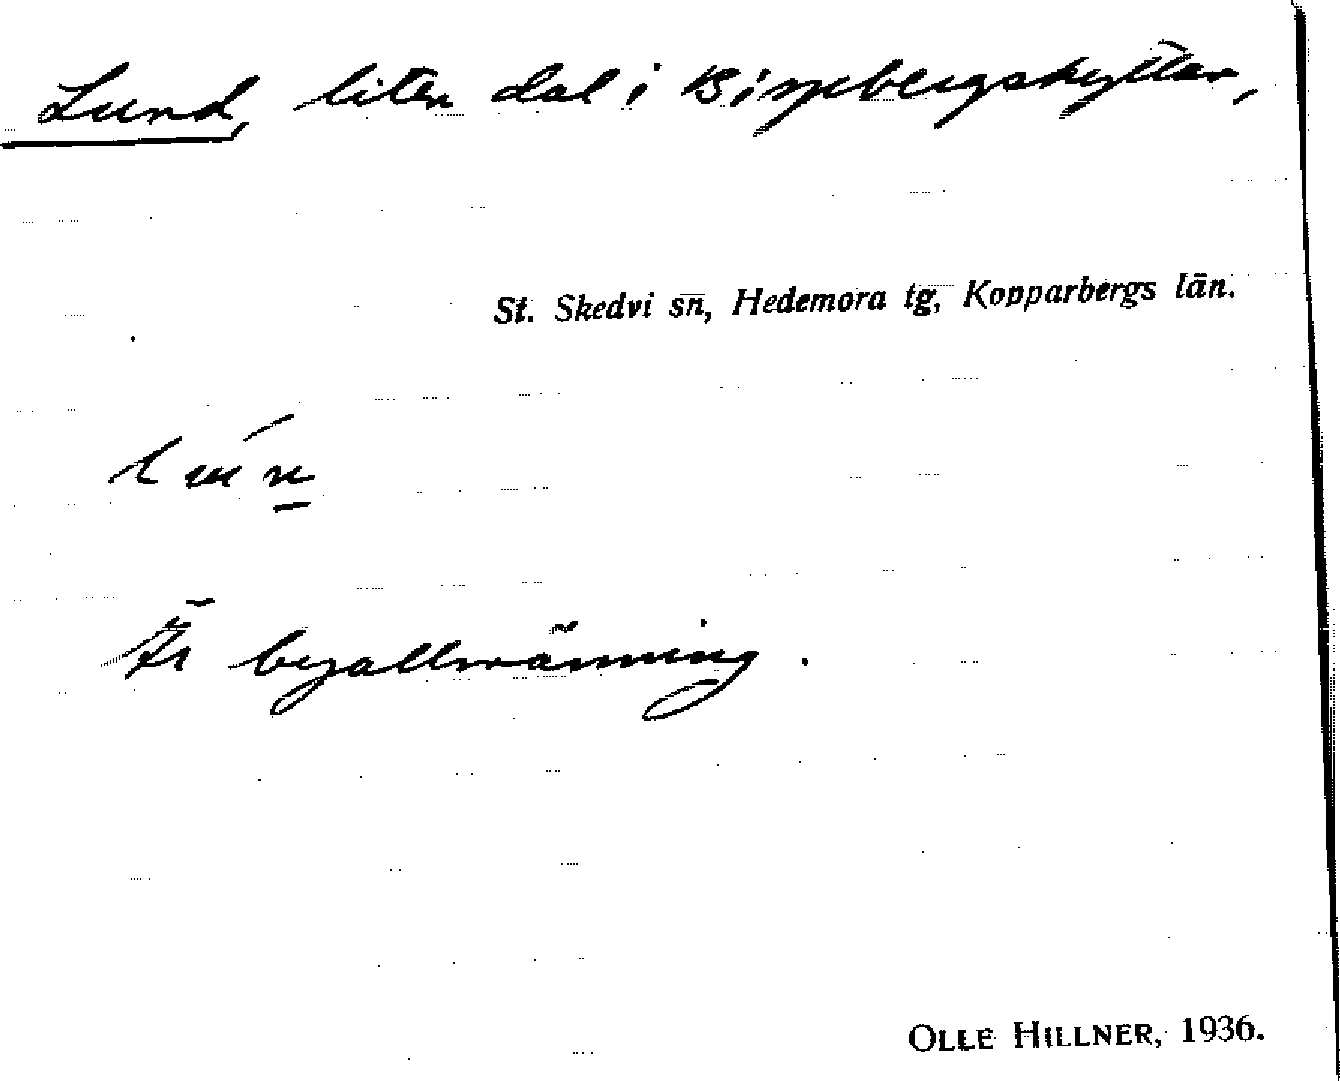 Lund, liten dal i Bispbergshyttan,
St. Skedvi sn, Hedemora tg, Kopparbergs län.
Är byallmänning.
OLLE HILLNER, 1936.